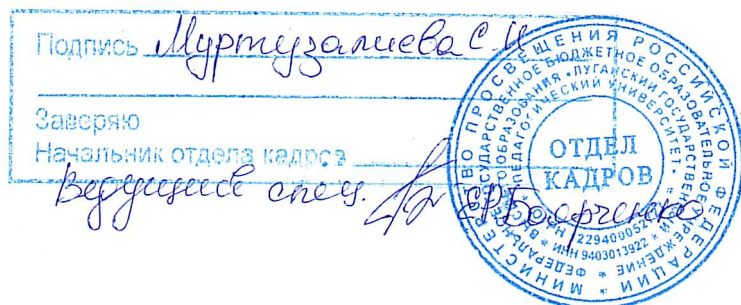 Подпись Муртузалиева С.И
Заверяю
Начальник отдела кадров
Ведущий спец. Е.Р. Боярченко
МИНИСТЕРСТВО ПРОСВЕЩЕНИЯ РОССИЙСКОЙ ФЕДЕРАЦИИ *
ФЕДЕРАЛЬНОЕ ГОСУДАРСТВЕННОЕ БЮДЖЕТНОЕ ОБРАЗОВАТЕЛЬНОЕ УЧРЕЖДЕНИЕ *
ВЫСШЕГО ОБРАЗОВАНИЯ «ЛУГАНСКИЙ ГОСУДАРСТВЕННЫЙ
ПЕДАГОГИЧЕСКИЙ УНИВЕРСИТЕТ»
* ИНН 9403013922 *
ОТДЕЛ
КАДРОВ